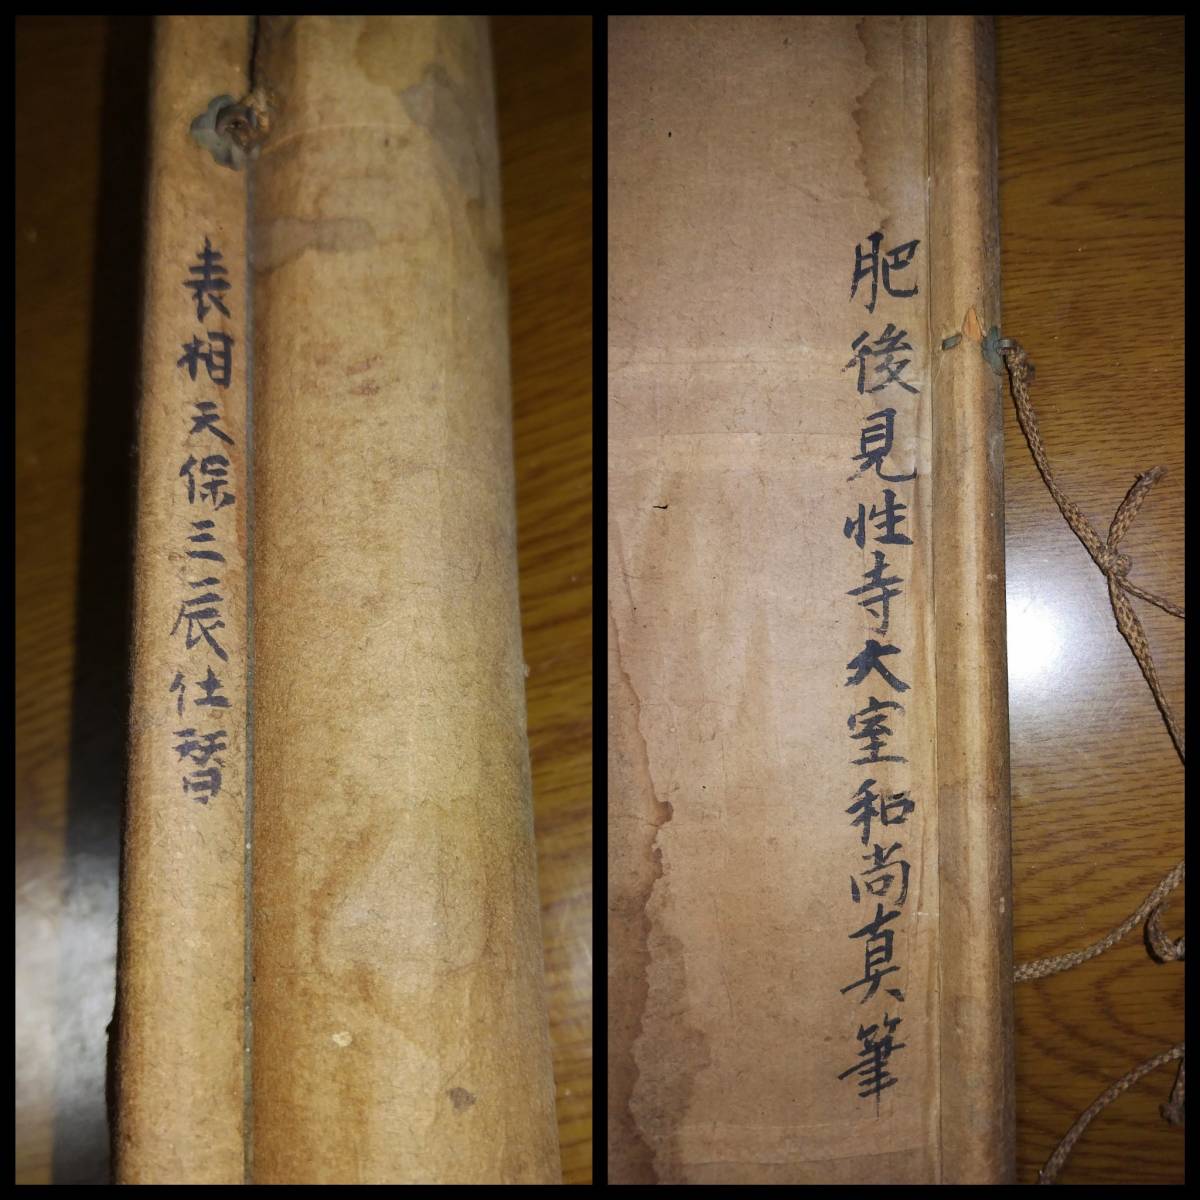 表相天保三辰仕替
肥後見性寺大室和尚真筆